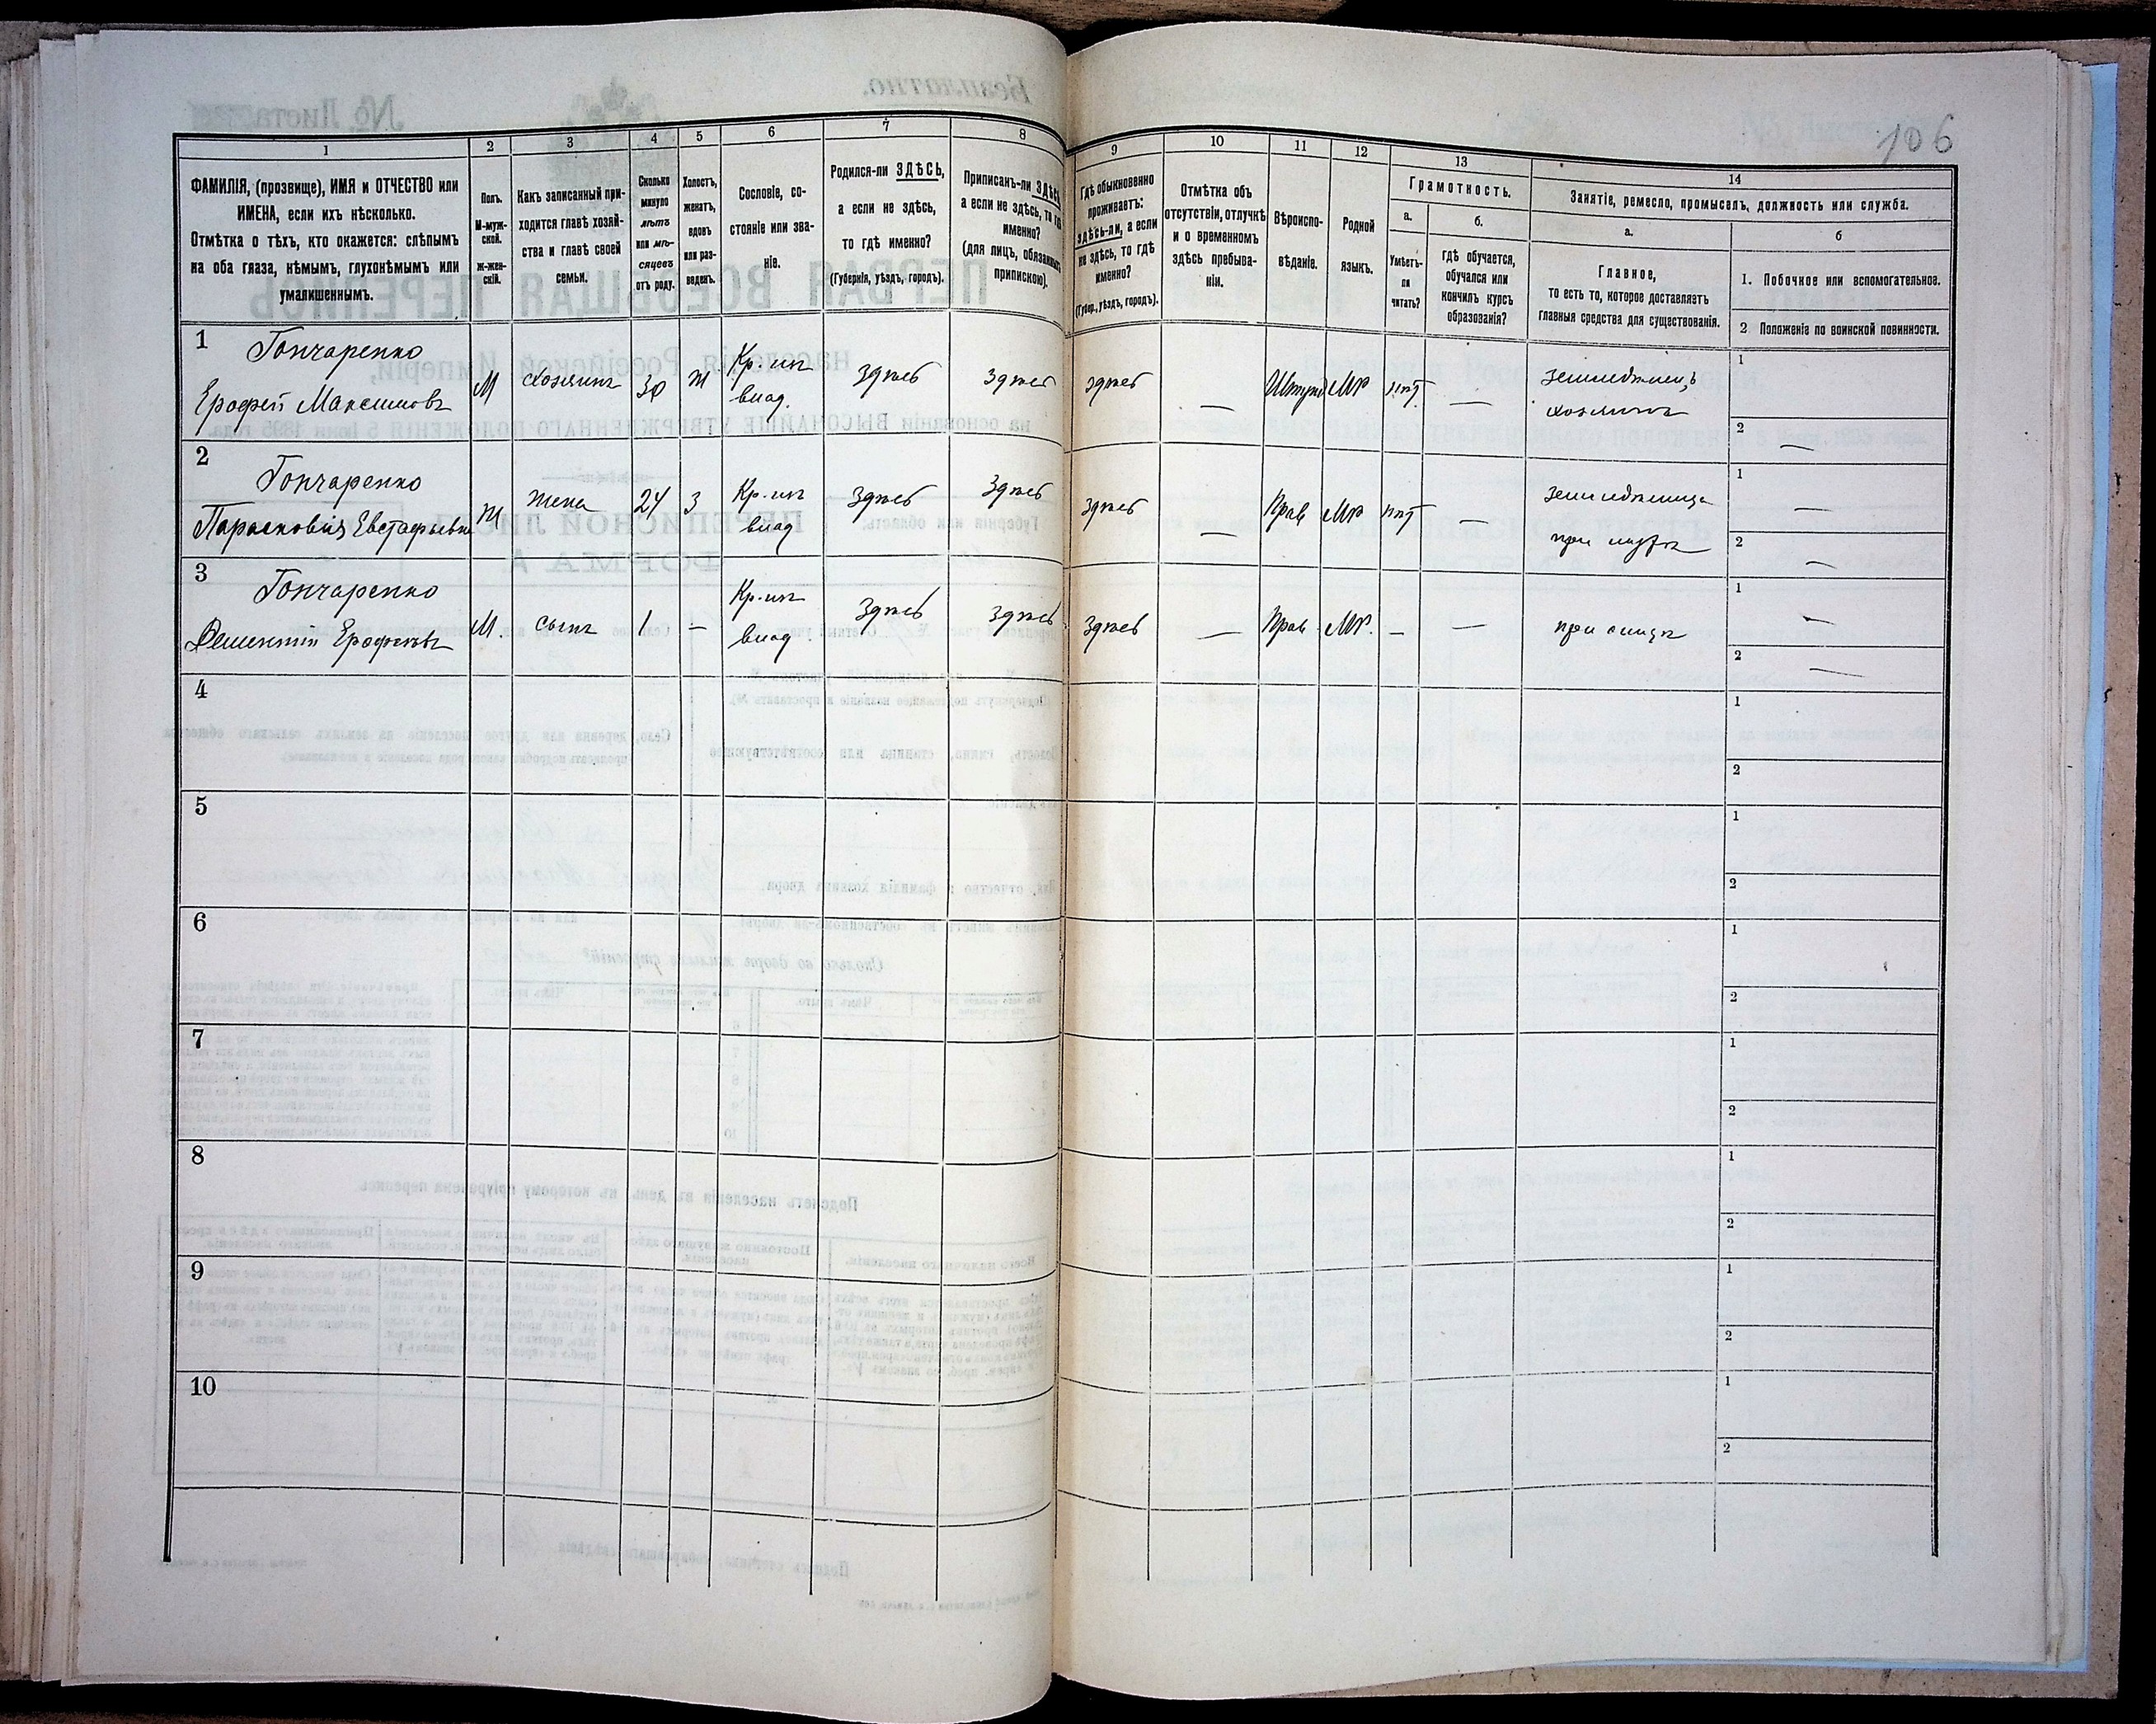 106
1
2
3
4
5
6
7
8
9
10
11
12
13
14
ФАМИЛІЯ, (прозвище), ИМЯ и ОТЧЕСТВО или
ИМЕНА, если ихъ нѣсколько.
Отмѣтка о тѣхъ, кто окажется: слѣпымъ
на оба глаза, нѣмымъ, глухонѣмымъ или
умалишеннымъ.
Полъ.
М-муж-
ской.
Ж-жен-
скій.
Какъ записанный при-
ходится главѣ хозяй-
ства и главѣ своей
семьи.
Сколько
минуло
лѣтъ
или мѣ-
сяцевъ
отъ роду.
Холостъ,
женатъ,
вдовъ
или раз-
веденъ.
Сословіе, со-
стояніе или зва-
ніе.
Родился-ли ЗДѢСЬ,
а если не здѣсь,
то гдѣ именно?
(Губернія, уѣздъ, городъ).
Приписанъ-ли ЗДѢСЬ,
а если не здѣсь, то гдѣ
именно?
(для лицъ, обязанныхъ
припискою).
Гдѣ обыкновенно
проживаетъ:
здѣсь-ли, а если
не здѣсь, то гдѣ
именно?
(Губер., уѣздъ, городъ).
Отмѣтка объ
отсутствіи, отлучкѣ
и о временномъ
здѣсь пребыва-
ніи.
Вѣроиспо-
вѣданіе.
Родной
языкъ.
Грамотность.
а.
Умѣетъ-
ли
читать?
б.
гдѣ обучается,
обучался или
кончилъ курсъ
образованія?
Занятіе, ремесло, промыселъ, должность или служба.
а.
Главное,
то есть то, которое доставляетъ
главныя средства для существованія.
б
1. Побочное или вспомогательное.
2. Положеніе по воинской повинности.
1 Гончаренко
Ерофей Максимовъ
М
хозяинъ
30
Ж
Кр. изъ
влад.
Здѣсь
Здѣсь
здѣсь
—
МР
нѣт
—
земледѣлецъ
хозяинъ
1
2 —
2 Гончаренко
Парасковия Евстафьевна
Ж
жена
24
З
Кр. изъ
влад
Здѣсь
Здѣсь
здѣсь
—
Прав
МР
нѣт
—
земледѣлица
при мужѣ
1 —
2 —
3 Гончаренко
Дементий Ерофеевъ
М.
сынъ
1
—
Кр. изъ
влад.
Здѣсь
Здѣсь
Здѣсь
—
Прав
МР.
—
—
при отцѣ
1 —
2 —
4
1
2
5
1
2
6
1
2
7
1
2
8
1
2
9
1
2
10
1
2